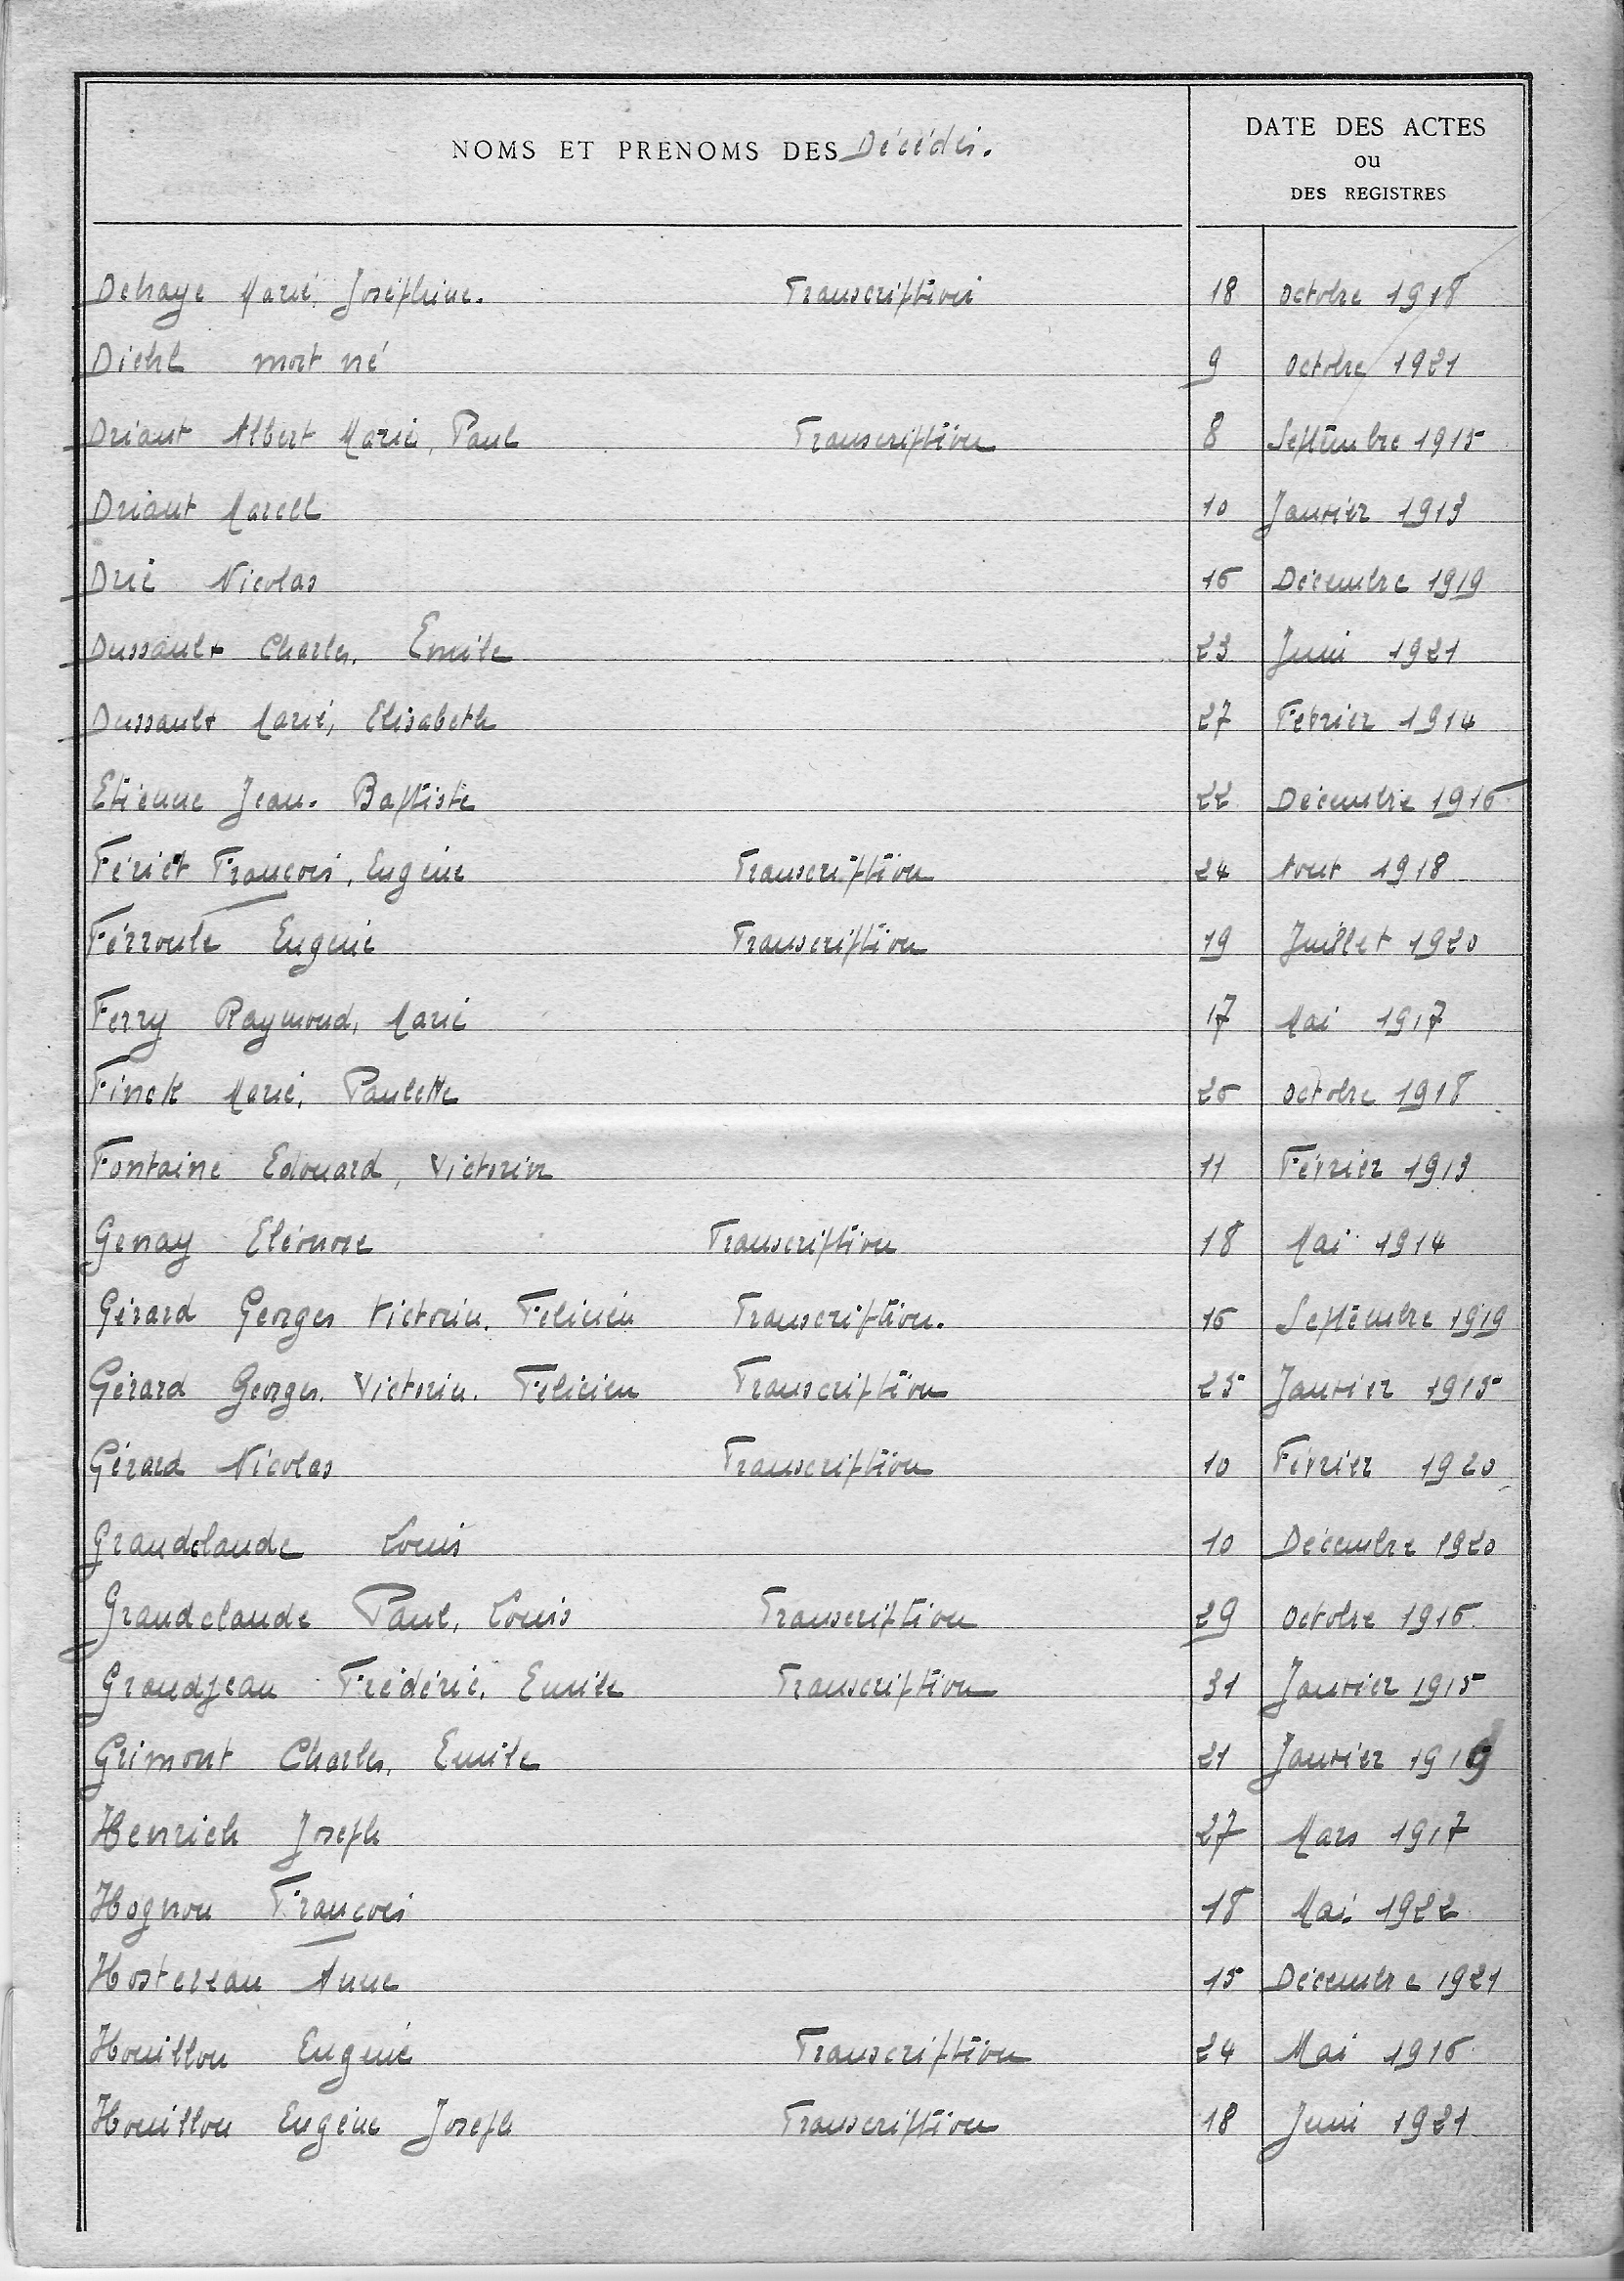 NOMS ET PRÉNOMS DES Décédés.
DATE DES ACTES
ou
DES REGISTRES
Dehaye Marie, Joséphine. Transcription 18 octobre 1918
Diehl mort né 9 octobre 1921
Driant Albert Marie, Paul Transcription 8 Septembre 1915
Driant Marcel 10 Janvier 1913
Drié Nicolas 16 Décembre 1919
Dussault Charles, Emile 23 Juin 1921
Dussault Marie, Elisabeth 27 Février 1914
Etienne Jean-Baptiste 22 Décembre 1916
Fériet François, Eugène Transcription 24 Aout 1918
Férroule Eugénie Transcription 19 Juillet 1920
Ferry Raymond, Marie 17 Mai 1917
Finck Marie, Paulette 26 octobre 1918
Fontaine Edouard, Victorin 11 Février 1913
Genay Eléonore Transcription 18 Mai 1914
Gérard Georges Victorin, Felicien Transcription. 16 Septembre 1919
Gérard Georges, Victorin, Felicien Transcription 25 Janvier 1915
Gérard Nicolas Transcription 10 Février 1920
Grandclaude Louis 10 Décembre 1920
Grandclaude Paul, Louis Transcription 29 octobre 1916
Grandjean Frédéric, Emile Transcription 31 Janvier 1915
Grimont Charles, Emile 21 Janvier 1919
Henrich Joseph 27 Mars 1917
Hognon François 18 Mai 1922
Anne 15 Décembre 1921
Houillon Eugénie Transcription 24 Mai 1916
Houillon Eugène Joseph Transcription 18 Juin 1921